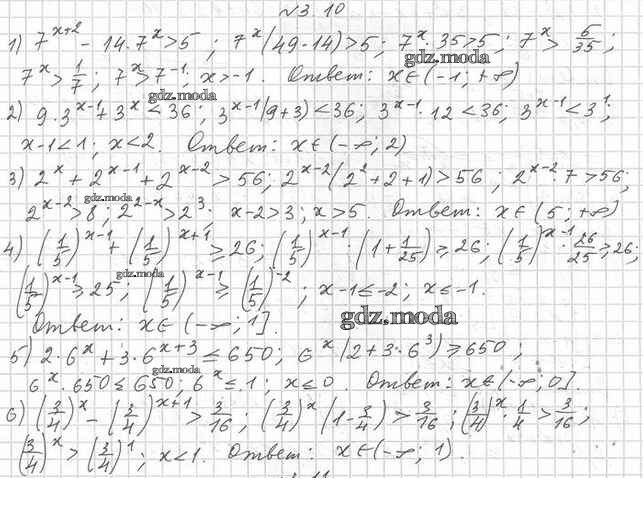 №3.10
1) 7^{x+2} - 14·7^x > 5; 7^x(49-14) > 5; 7^x·35 > 5; 7^x > 5/35;
7^x > 1/7; 7^x > 7^{-1}; x > -1. Ответ: x∈(-1; +∞)
gdz.moda
gdz.moda
2) 9·3^{x-1} + 3^x < 36; 3^{x-1}(9+3) < 36; 3^{x-1}·12 < 36; 3^{x-1} < 3^1;
x-1 < 1; x < 2. Ответ: x∈(-∞; 2)
3) 2^x + 2^{x-1} + 2^{x-2} > 56; 2^{x-2}(2^2+2+1) > 56; 2^{x-2}·7 > 56;
gdz.moda
2^{x-2} > 8; 2^{2-x} > 2^3; x-2 > 3; x > 5. Ответ: x∈(5; +∞)
4) (1/5)^{x-1} + (1/5)^{x+1} ≥ 26; (1/5)^{x-1}·(1+1/25) ≥ 26; (1/5)^{x-1}·26/25 ≥ 26;
gdz.moda
(1/5)^{x-1} ≥ 25; (1/5)^{x-1} ≥ (1/5)^{-2}; x-1 ≤ -2; x ≤ -1.
gdz.moda
Ответ: x∈(-∞; 1].
5) 2·6^x + 3·6^{x+3} ≤ 650; 6^x(2+3·6^3) ≥ 650;
gdz.moda
6^x·650 ≤ 650; 6^x ≤ 1; x ≤ 0. Ответ: x∈(-∞, 0].
6) (3/4)^x - (3/4)^{x+1} > 3/16; (3/4)^x(1-3/4) > 3/16; (3/4)^x·1/4 > 3/16;
(3/4)^x > (3/4)^1; x < 1. Ответ: x∈(-∞; 1).